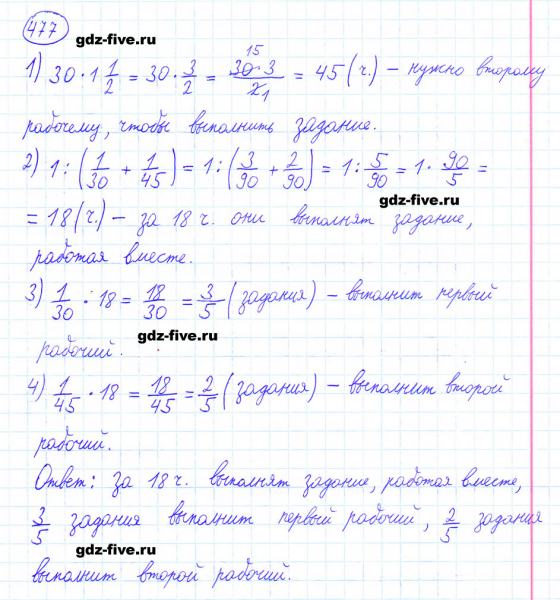 477
gdz-five.ru
1) 30 · 1 1/2 = 30 · 3/2 = 30 · 3 / 2 = 45 (ч.) – нужно второму
15
1
рабочему, чтобы выполнить задание.
2) 1 : (1/30 + 1/45) = 1 : (3/90 + 2/90) = 1 : 5/90 = 1 · 90/5 =
gdz-five.ru
= 18 (ч.) – за 18 ч. они выполнят задание,
работая вместе.
3) 1/30 · 18 = 18/30 = 3/5 (задания) – выполнит первый
gdz-five.ru
рабочий.
4) 1/45 · 18 = 18/45 = 2/5 (задания) – выполнит второй
рабочий.
Ответ: за 18 ч. выполнят задание, работая вместе,
3/5 задания выполнит первый рабочий, 2/5 задания
gdz-five.ru
выполнит второй рабочий.